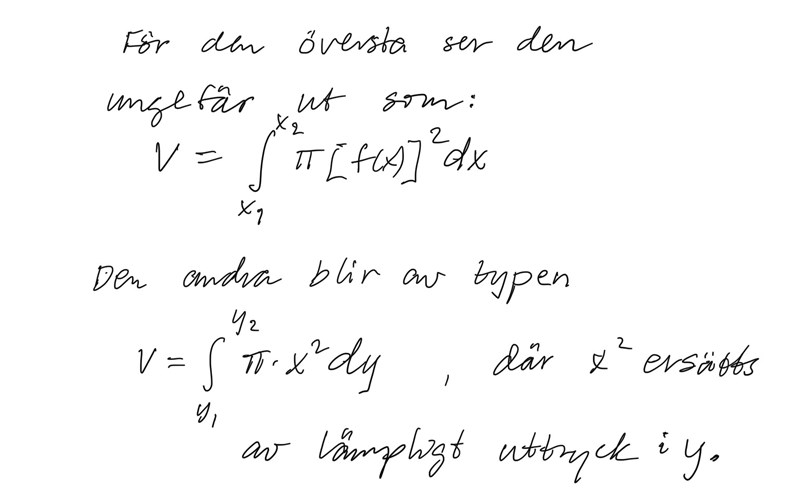 För den översta ser den
ungefär ut som:
V = ∫_{x_1}^{x_2} π[f(x)]^2 dx
Den andra blir av typen
V = ∫_{y_1}^{y_2} π·x^2 dy , där x^2 ersätts
av lämpligt uttryck i y.